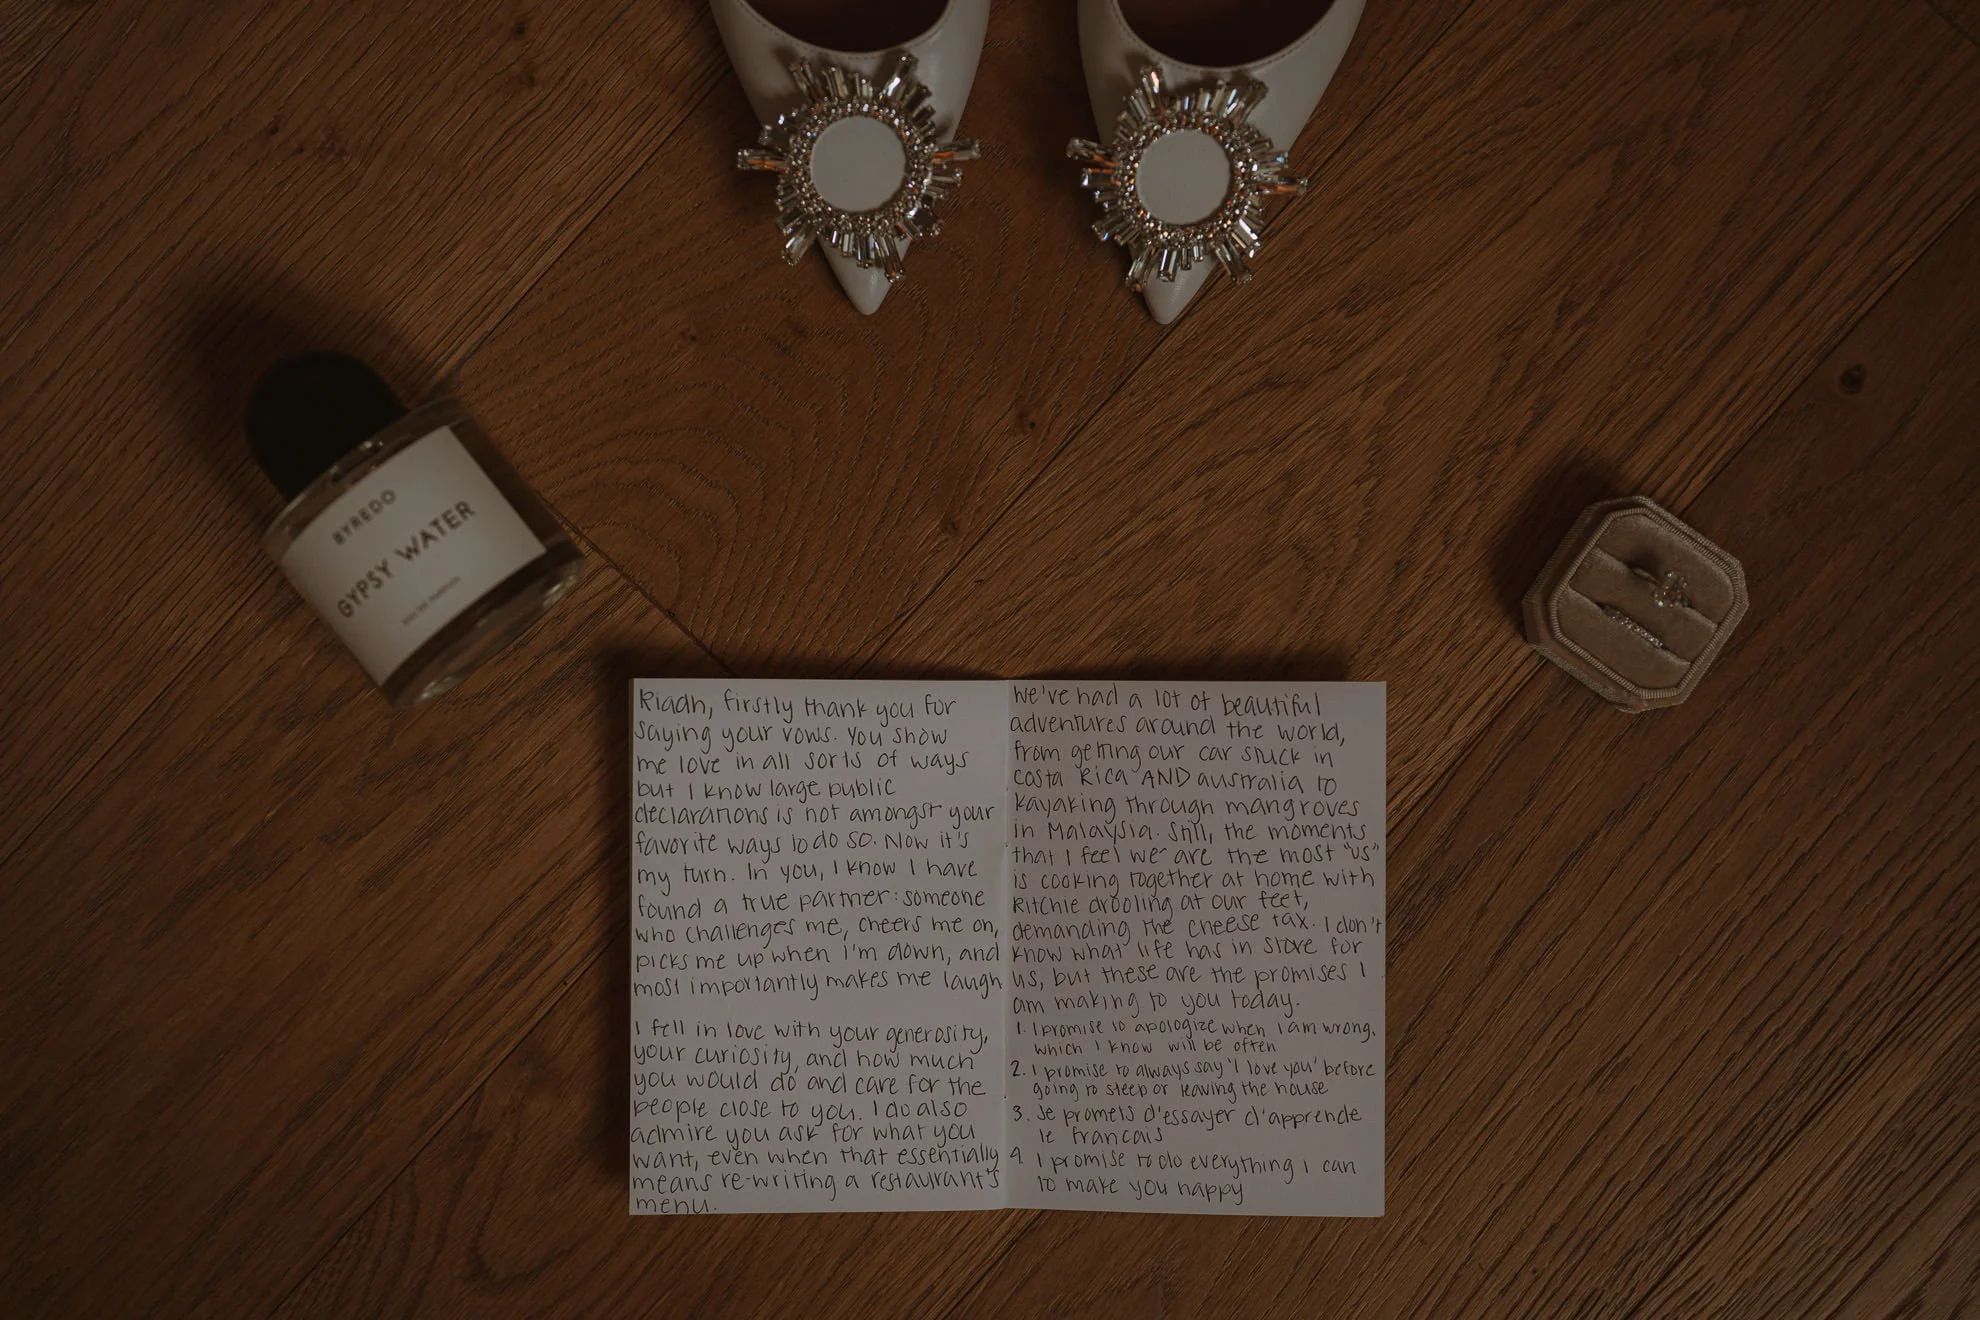 BYREDO
GYPSY WATER
EAU DE PARFUM
Riadh, firstly thank you for
saying your vows. You show
me love in all sorts of ways
but I know large public
declarations is not amongst your
favorite ways to do so. Now it's
my turn. In you, I know I have
found a true partner: someone
who challenges me, cheers me on,
picks me up when I'm down, and
most importantly makes me laugh
I fell in love with your generosity,
your curiosity, and how much
you would do and care for the
people close to you. I do also
admire you ask for what you
want, even when that essentially
means re-writing a restaurant's
menu.
We've had a lot of beautiful
adventures around the world,
from getting our car stuck in
Costa Rica AND australia to
kayaking through mangroves
in Malaysia. Still, the moments
that I feel we are the most "us"
is cooking together at home with
Ritchie drooling at our feet,
demanding the cheese tax. I don't
know what life has in store for
us, but these are the promises I
am making to you today.
1. I promise to apologize when I am wrong,
which I know will be often
2. I promise to always say 'I love you' before
going to sleep or leaving the house
3. Je promets d'essayer d'apprende
le francais
4. I promise to do everything I can
to make you happy